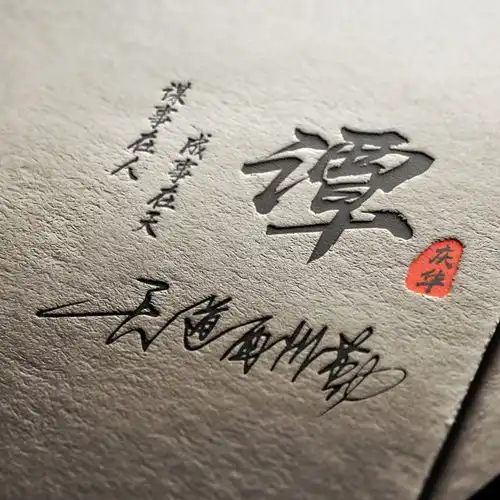 谋事在人
成事在天
谭
庆华
天道酬勤